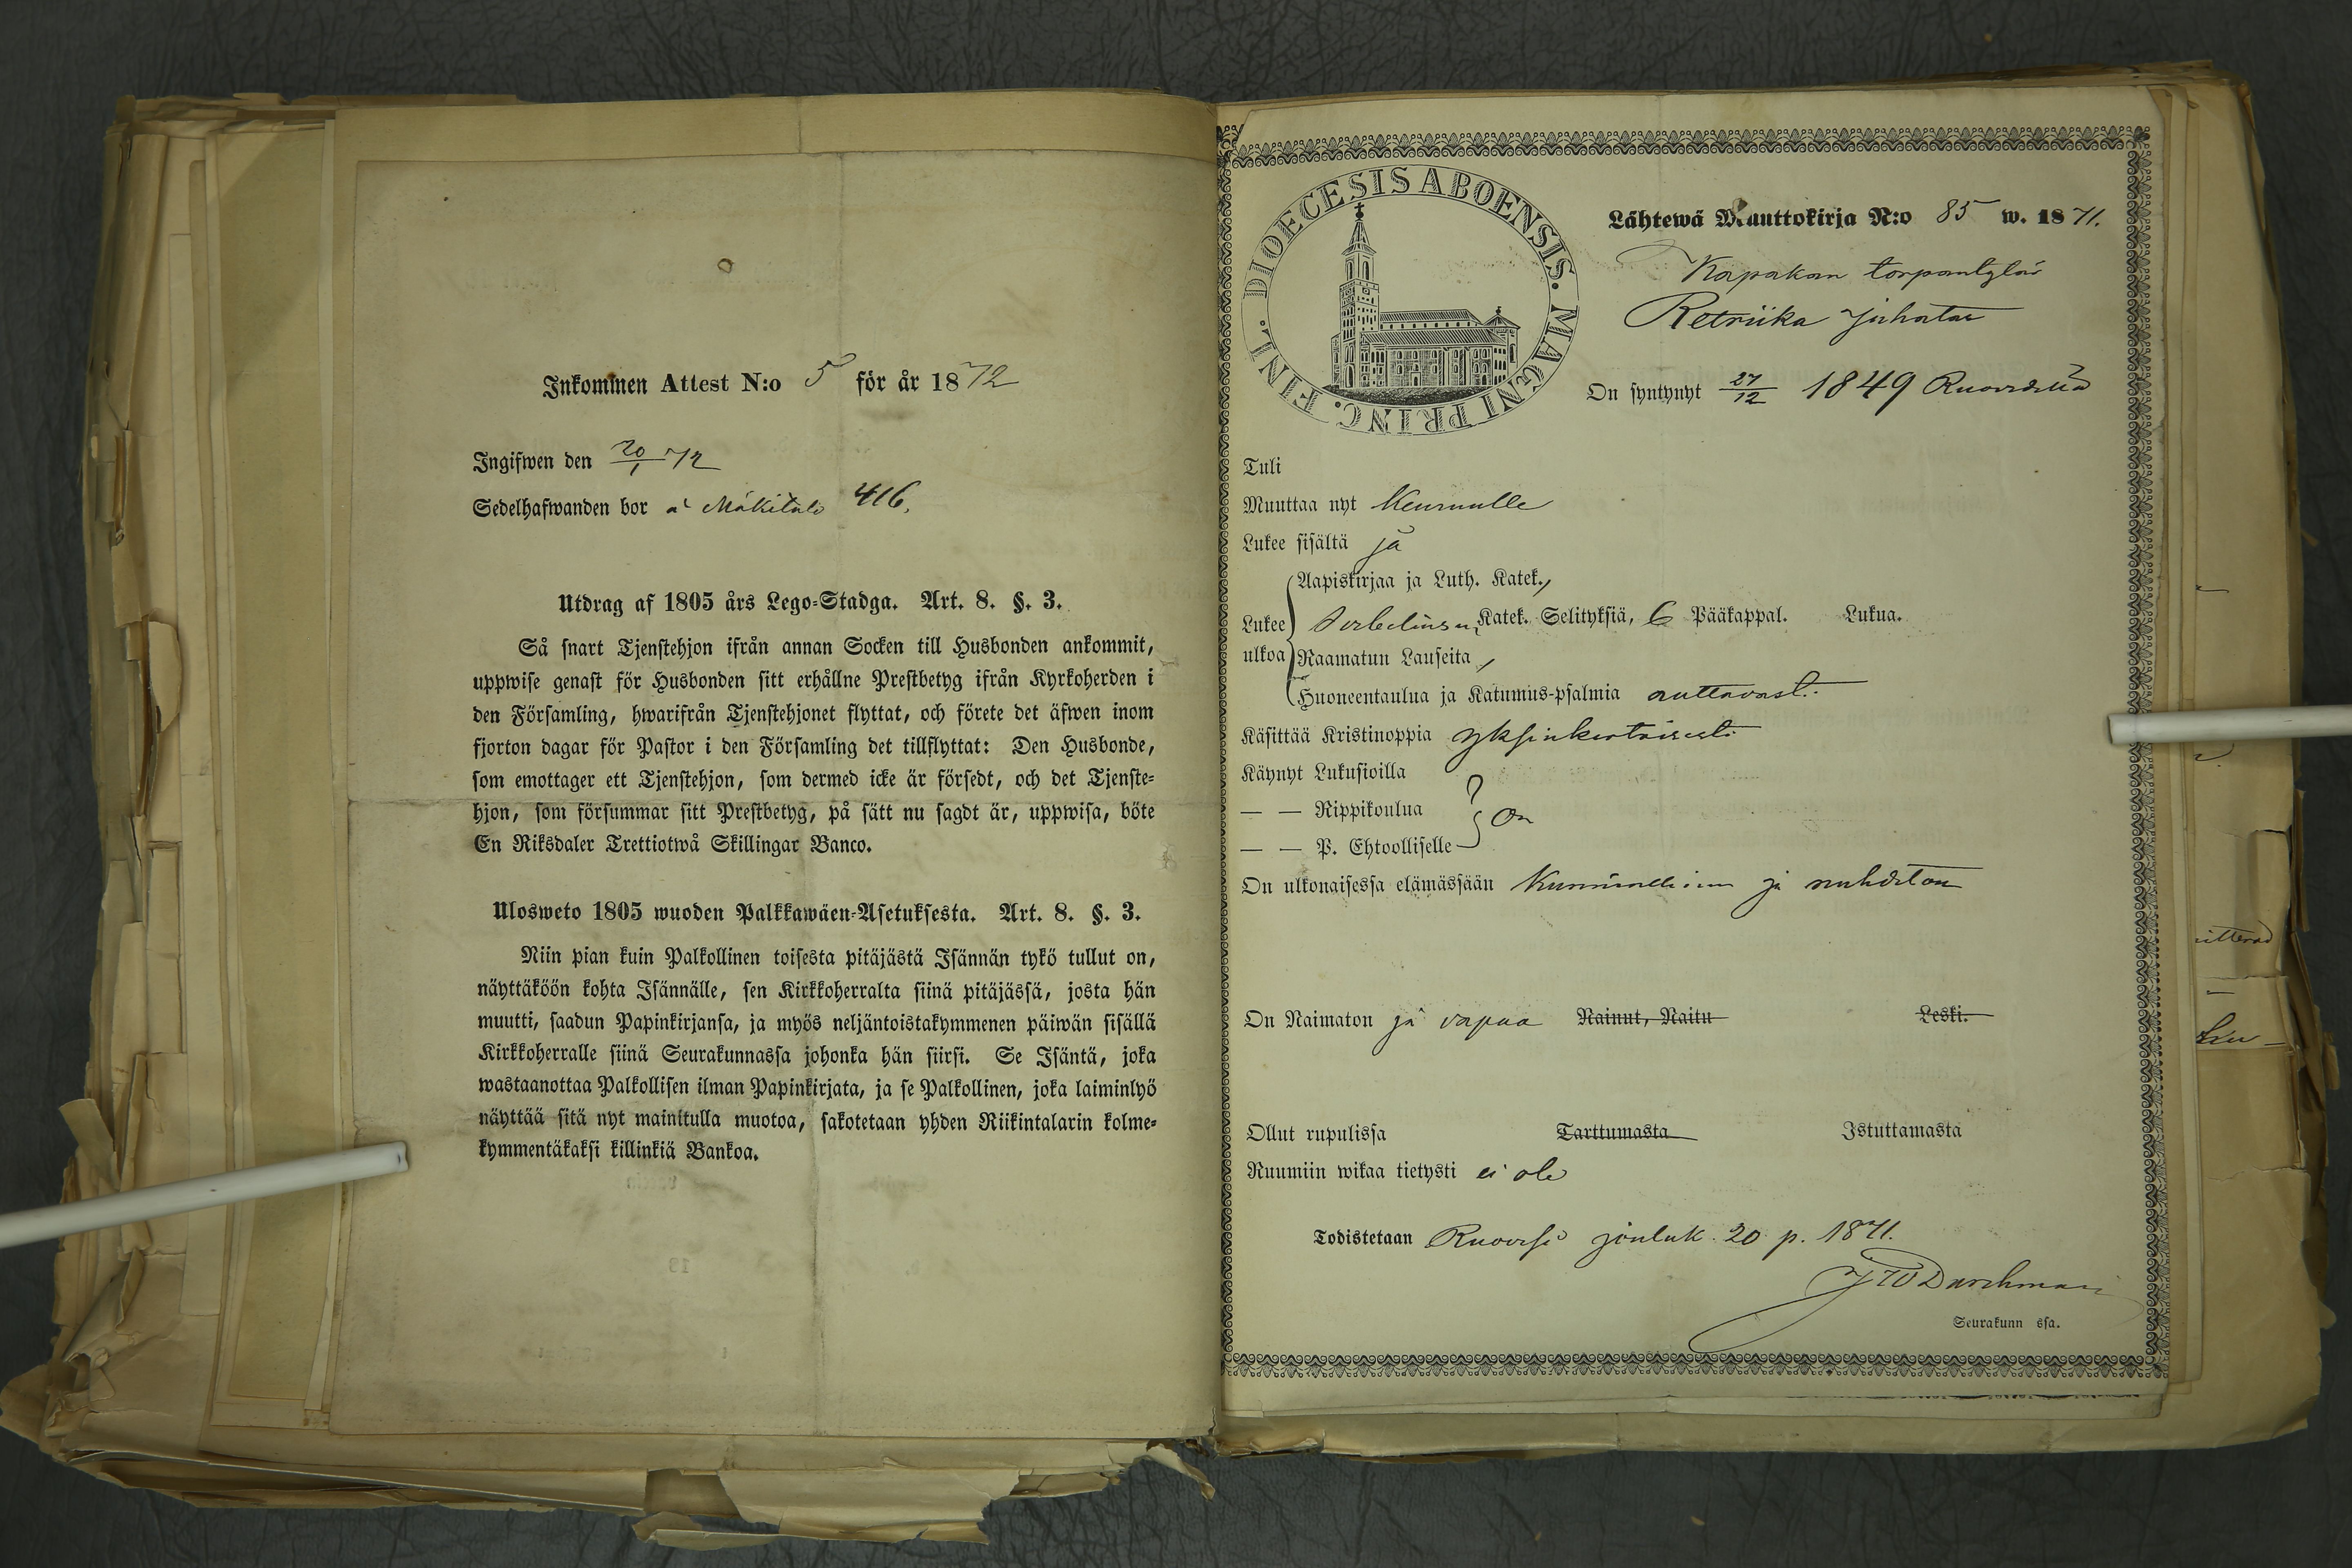 Inkommen Attest N:o 5 för år 1872
Ingifwen den 20/1 72
Sedelhafwanden bor å Mäkitalo 416.
Utdrag af 1805 års Lego-Stadga. Art. 8. §. 3.
Så snart Tjenstehjon ifrån annan Socken till Husbonden ankommit,
uppwise genast för Husbonden sitt erhållne Prestbetyg ifrån Kyrkoherden i
den Församling, hwarifrån Tjenstehjonet flyttat, och förete det äfwen inom
fjorton dagar för Pastor i den Församling det tillflyttat: Den Husbonde,
som emottager ett Tjenstehjon, som dermed icke är försedt, och det Tjenste-
hjon, som försummar sitt Prestbetyg, på sätt nu sagdt är, uppwisa, böte
En Riksdaler Trettiotwå Skillingar Banco.
Ulosweto 1805 wuoden Palkkawäen-Asetuksesta. Art. 8. §. 3.
Niin pian kuin Palkollinen toisesta pitäjästä Isännän tykö tullut on,
näyttäköön kohta Isännälle, sen Kirkkoherralta siinä pitäjässä, josta hän
muutti, saadun Papinkirjansa, ja myös neljäntoistakymmenen päiwän sisällä
Kirkkoherralle siinä Seurakunnassa johonka hän siirsi. Se Isäntä, joka
wastaanottaa Palkollisen ilman Papinkirjata, ja se Palkollinen, joka laiminlyö
näyttää sitä nyt mainitulla muotoa, sakotetaan yhden Riikintalarin kolme-
kymmentäkaksi killinkiä Bankoa.
DIOECESIS ABOENSIS. MAGNI PRINC. FINL.
Lähtewä Muuttokirja N:o 85 w. 1871.
Kapakan torpantytär
Retriika Juhatar
On syntynyt 27/12 1849 Ruovedellä
Tuli
Muuttaa nyt Keuruulle
Lukee sisältä ja
Aapiskirjaa ja Luth. Katek.,
Lukee ulkoa Katek. Selityksiä, 6 Pääkappal. Lukua.
Raamatun Lauseita,
Huoneentaulua ja Katumus-psalmia auttavasti.
Käsittää Kristinoppia yksinkertaisesti
Käynyt Lukusioilla
— — Rippikoulua On
— — P. Ehtoolliselle
On ulkonaisessa elämässään Kunniallinen ja nuhdeton
On Naimaton ja vapaa Nainut, Naitu Leski.
Ollut rupulissa Tarttumasta Istuttamasta
Ruumiin wikaa tietysti ei ole
Todistetaan Ruovesi jouluk. 20 p. 1871.
J W Durchman
Seurakunn ssa.